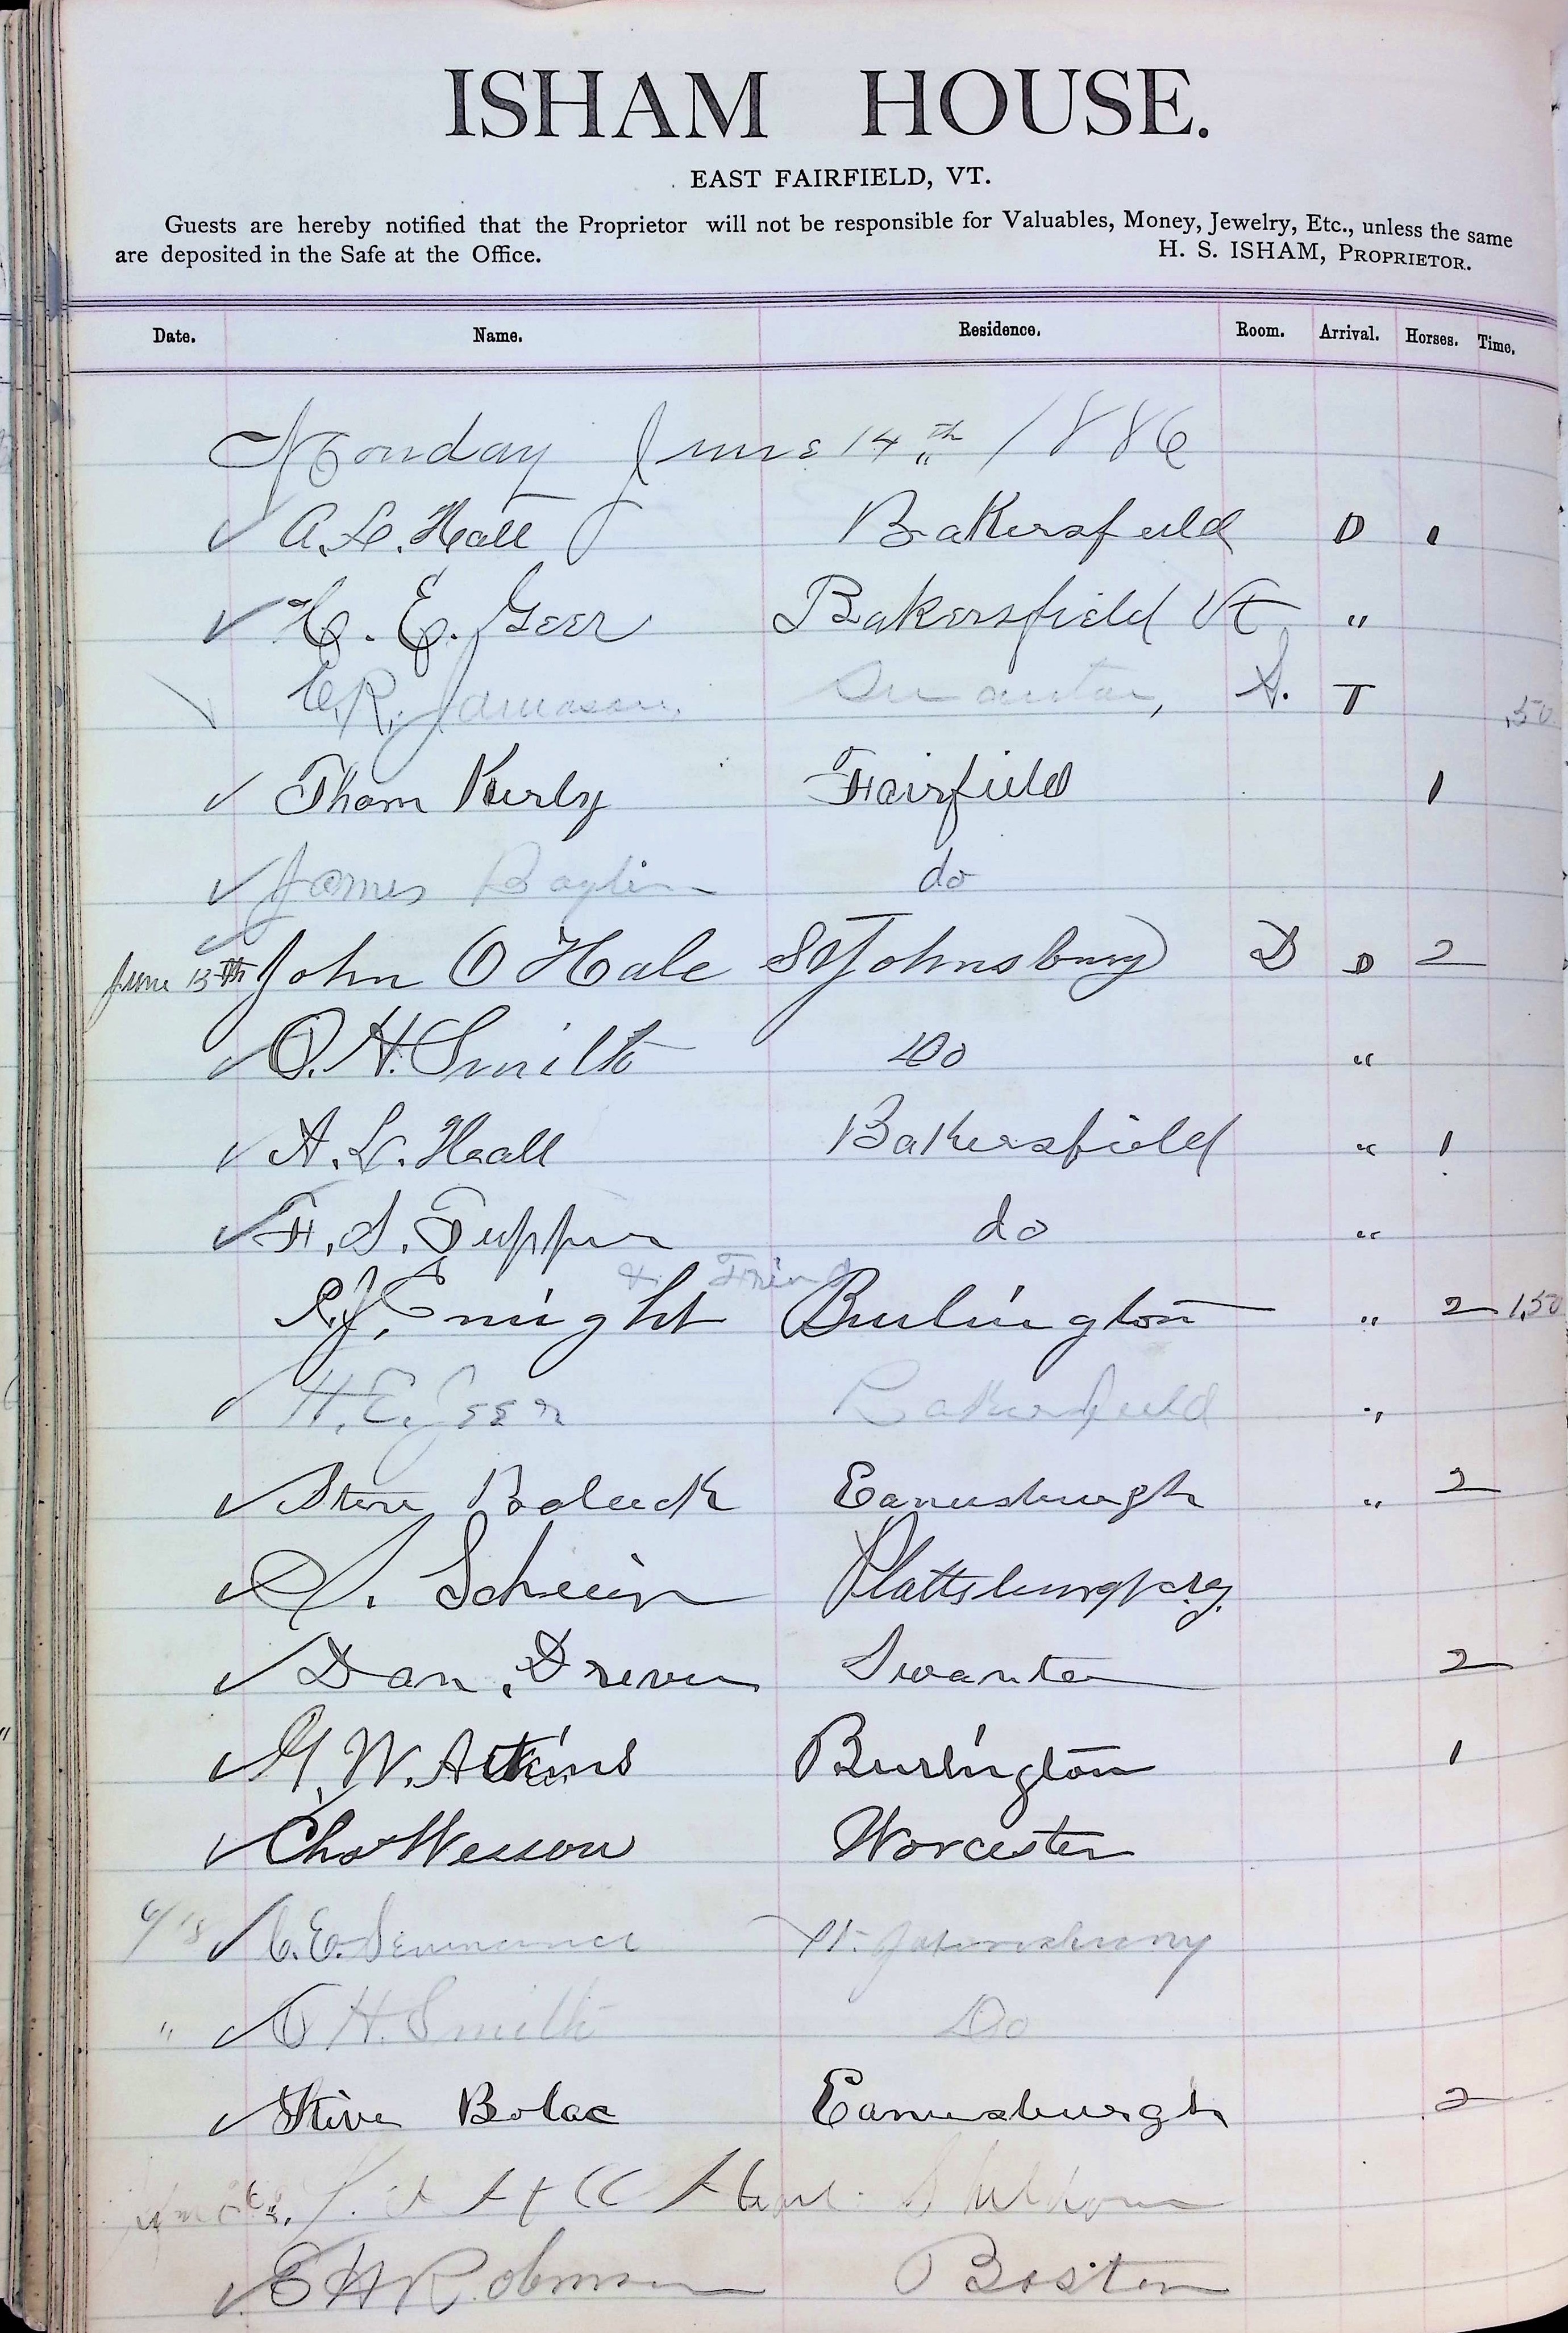 ISHAM HOUSE.
EAST FAIRFIELD, VT.
Guests are hereby notified that the Proprietor will not be responsible for Valuables, Money, Jewelry, Etc., unless the same
are deposited in the Safe at the Office. H. S. ISHAM, PROPRIETOR.
Date. Name. Residence. Room. Arrival. Horses. Time.
Monday June 14th 1886
✓ A. L. Hall Bakersfield D 1
✓ H. E. Geer Bakersfield Vt "
C. R. Jamason, Swanton, S. T .50
✓ Thom Kirly Fairfield 1
✓ James do
✓ June 15th John O Hale St Johnsbury D D 2
✓ O. H. Smith Do "
✓ A. L. Hall Bakersfield " 1
✓ F. S. Tupper do "
& Friend
P. J. Enright Burlington " 2 1,50
✓ H. E. Geer Bakersfield "
✓ Steve " 2
✓ S. Schein Plattsburgh N.Y.
✓ Dan. Swanton 2
✓ G. W. Atkins Burlington 1
✓ Chas Wesson Worcester
6/18 ✓ C. E. St. Johnsbury
" ✓ O H. Smith Do
✓ Stive Bolac 2
Sheldon
✓ E H Robinson Boston